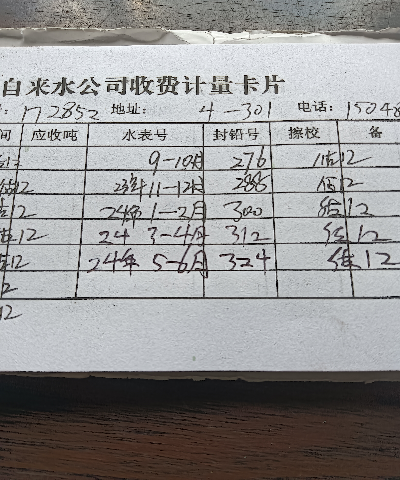 自来水公司收费计量卡片
: 172852 地址: 4-301 电话: 15048
间 应收吨 水表号 封铅号 擦校 备
12 9-10月 276 估12
12 23年11-12月 288 估12
12 24年 1-2月 300 估12
12 24 3-4月 312 估12
12 24年 5-6月 324 估12
12
12